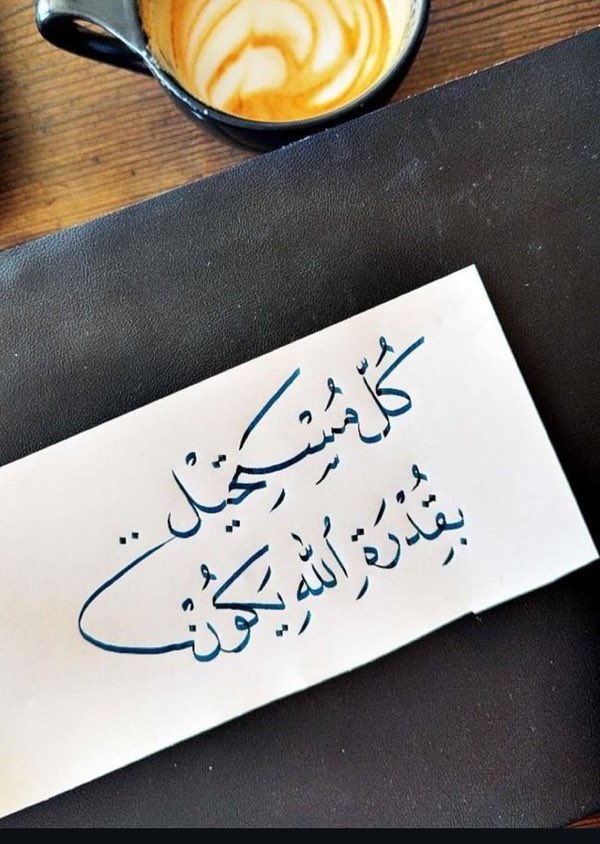 كُلّ مُسْتَحِيْل..
بِقُدْرَةِ اللهِ يَكُونْ